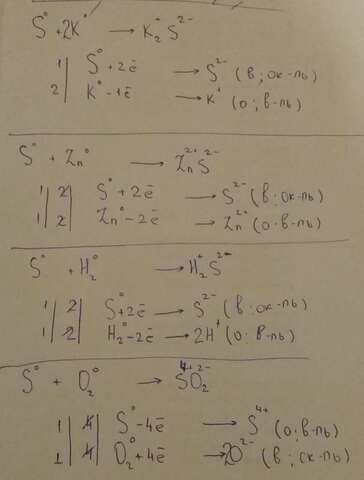 S⁰ + 2K⁰ → K₂⁺ S²⁻
1 | S⁰ + 2ē → S²⁻ (в ; ок-ль)
2 | K⁰ - 1ē → K⁺ (о ; в-ль)
S⁰ + Zn⁰ → Zn²⁺S²⁻
1 | 2 | S⁰ + 2ē → S²⁻ (в ; ок-ль)
1 | 2 | Zn⁰ - 2ē → Zn²⁺ (о ; в-ль)
S⁰ + H₂⁰ → H₂⁺S²⁻
1 | 2 | S⁰ + 2ē → S²⁻ (в ; ок-ль)
1 | 2 | H₂⁰ - 2ē → 2H⁺ (о ; в-ль)
S⁰ + O₂⁰ → S⁴⁺O₂²⁻
1 | 4 | S⁰ - 4ē → S⁴⁺ (о ; в-ль)
1 | 4 | O₂⁰ + 4ē → 2O²⁻ (в ; ок-ль)